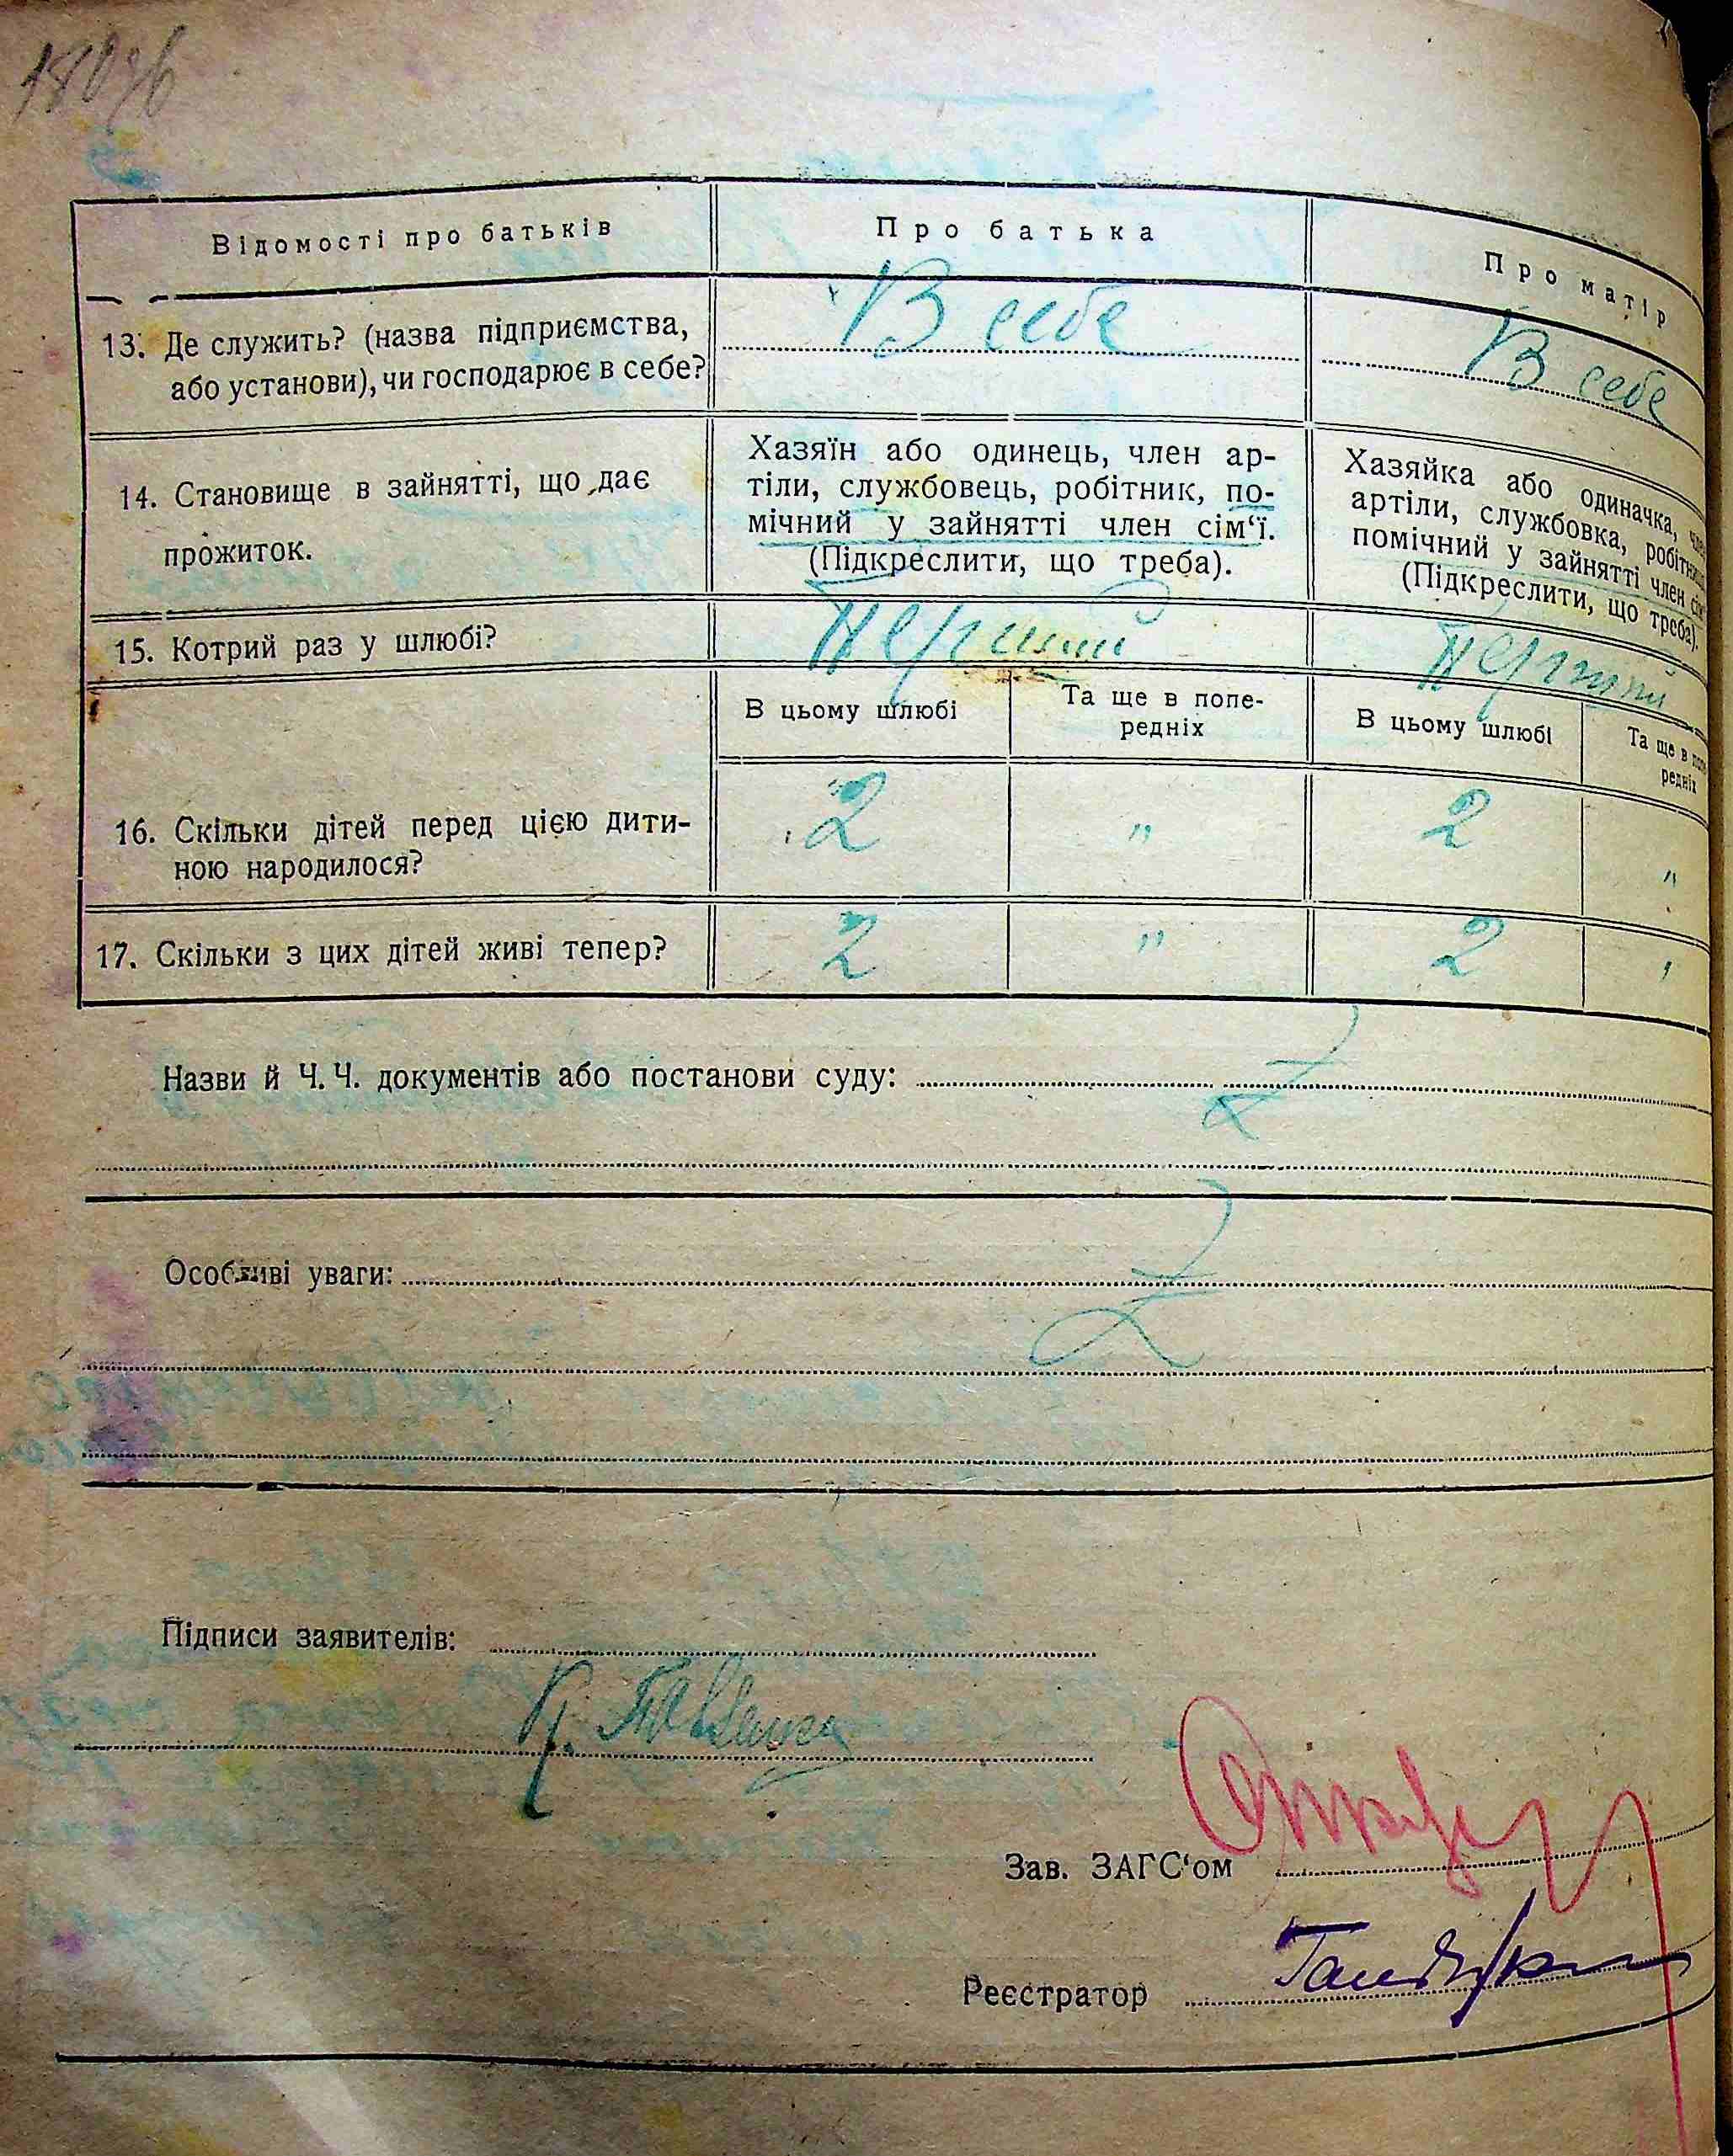 Відомості про батьків
Про батька
Про матір
13. Де служить? (назва підприємства,
або установи), чи господарює в себе?
В себе
В себе
14. Становище в зайнятті, що дає
прожиток.
Хазяїн або одинець, член ар-
тіли, службовець, робітник, по-
мічний у зайнятті член сім‘ї.
(Підкреслити, що треба).
Хазяйка або одиначка,
артіли, службовка,
помічний у зайнятті член
(Підкреслити, що треба).
15. Котрий раз у шлюбі?
Перший
Перший
В цьому шлюбі
Та ще в попе-
редніх
В цьому шлюбі
Та ще в попе-
редніх
16. Скільки дітей перед цією дити-
ною народилося?
2
"
2
"
17. Скільки з цих дітей живі тепер?
2
"
2
Назви й Ч. Ч. документів або постанови суду:
Особливі уваги:
Підписи заявителів:
Зав. ЗАГС‘ом
Реєстратор